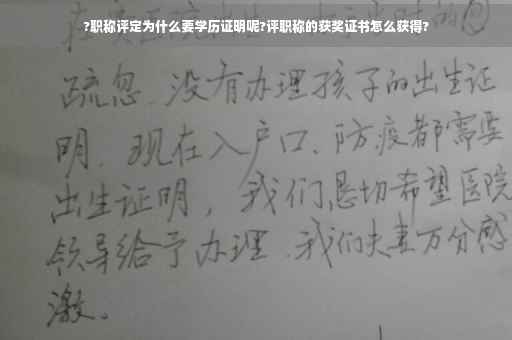 ?职称评定为什么要学历证明呢?评职称的获奖证书怎么获得?
疏忽.没有办理孩子的出生证
明.现在入户口、防疫都需要
出生证明,我们恳切希望医院
领导给予办理.我们夫妻万分感
激。